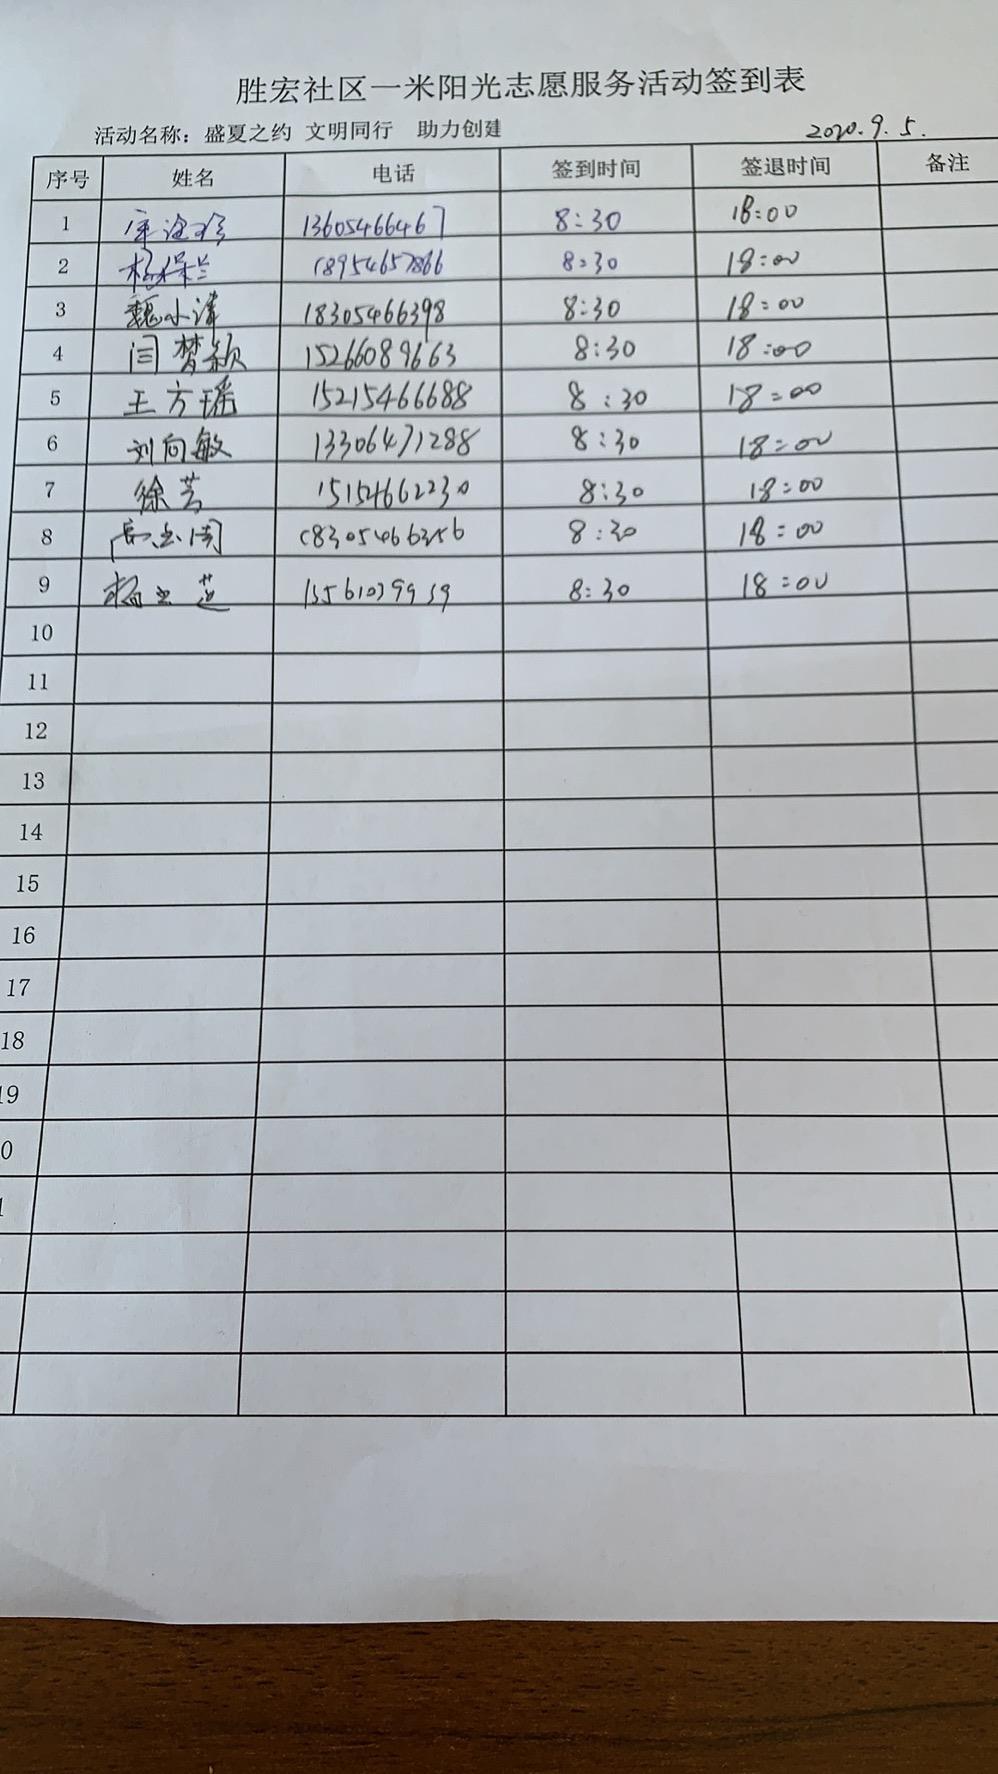 胜宏社区一米阳光志愿服务活动签到表
活动名称：盛夏之约 文明同行 助力创建 2020.9.5.
序号 姓名 电话 签到时间 签退时间 备注
1 13605466467 8:30 18:00
2 杨保兰 18954657866 8:30 18:00
3 魏小清 18305466398 8:30 18:00
4 闫梦颖 15266089663 8:30 18:00
5 王方瑶 15215466688 8:30 18:00
6 刘向敏 13306471288 8:30 18:00
7 徐芸 15154662230 8:30 18:00
8 8:30 18:00
9 8:30 18:00
10
11
12
13
14
15
16
17
18
19
0
1